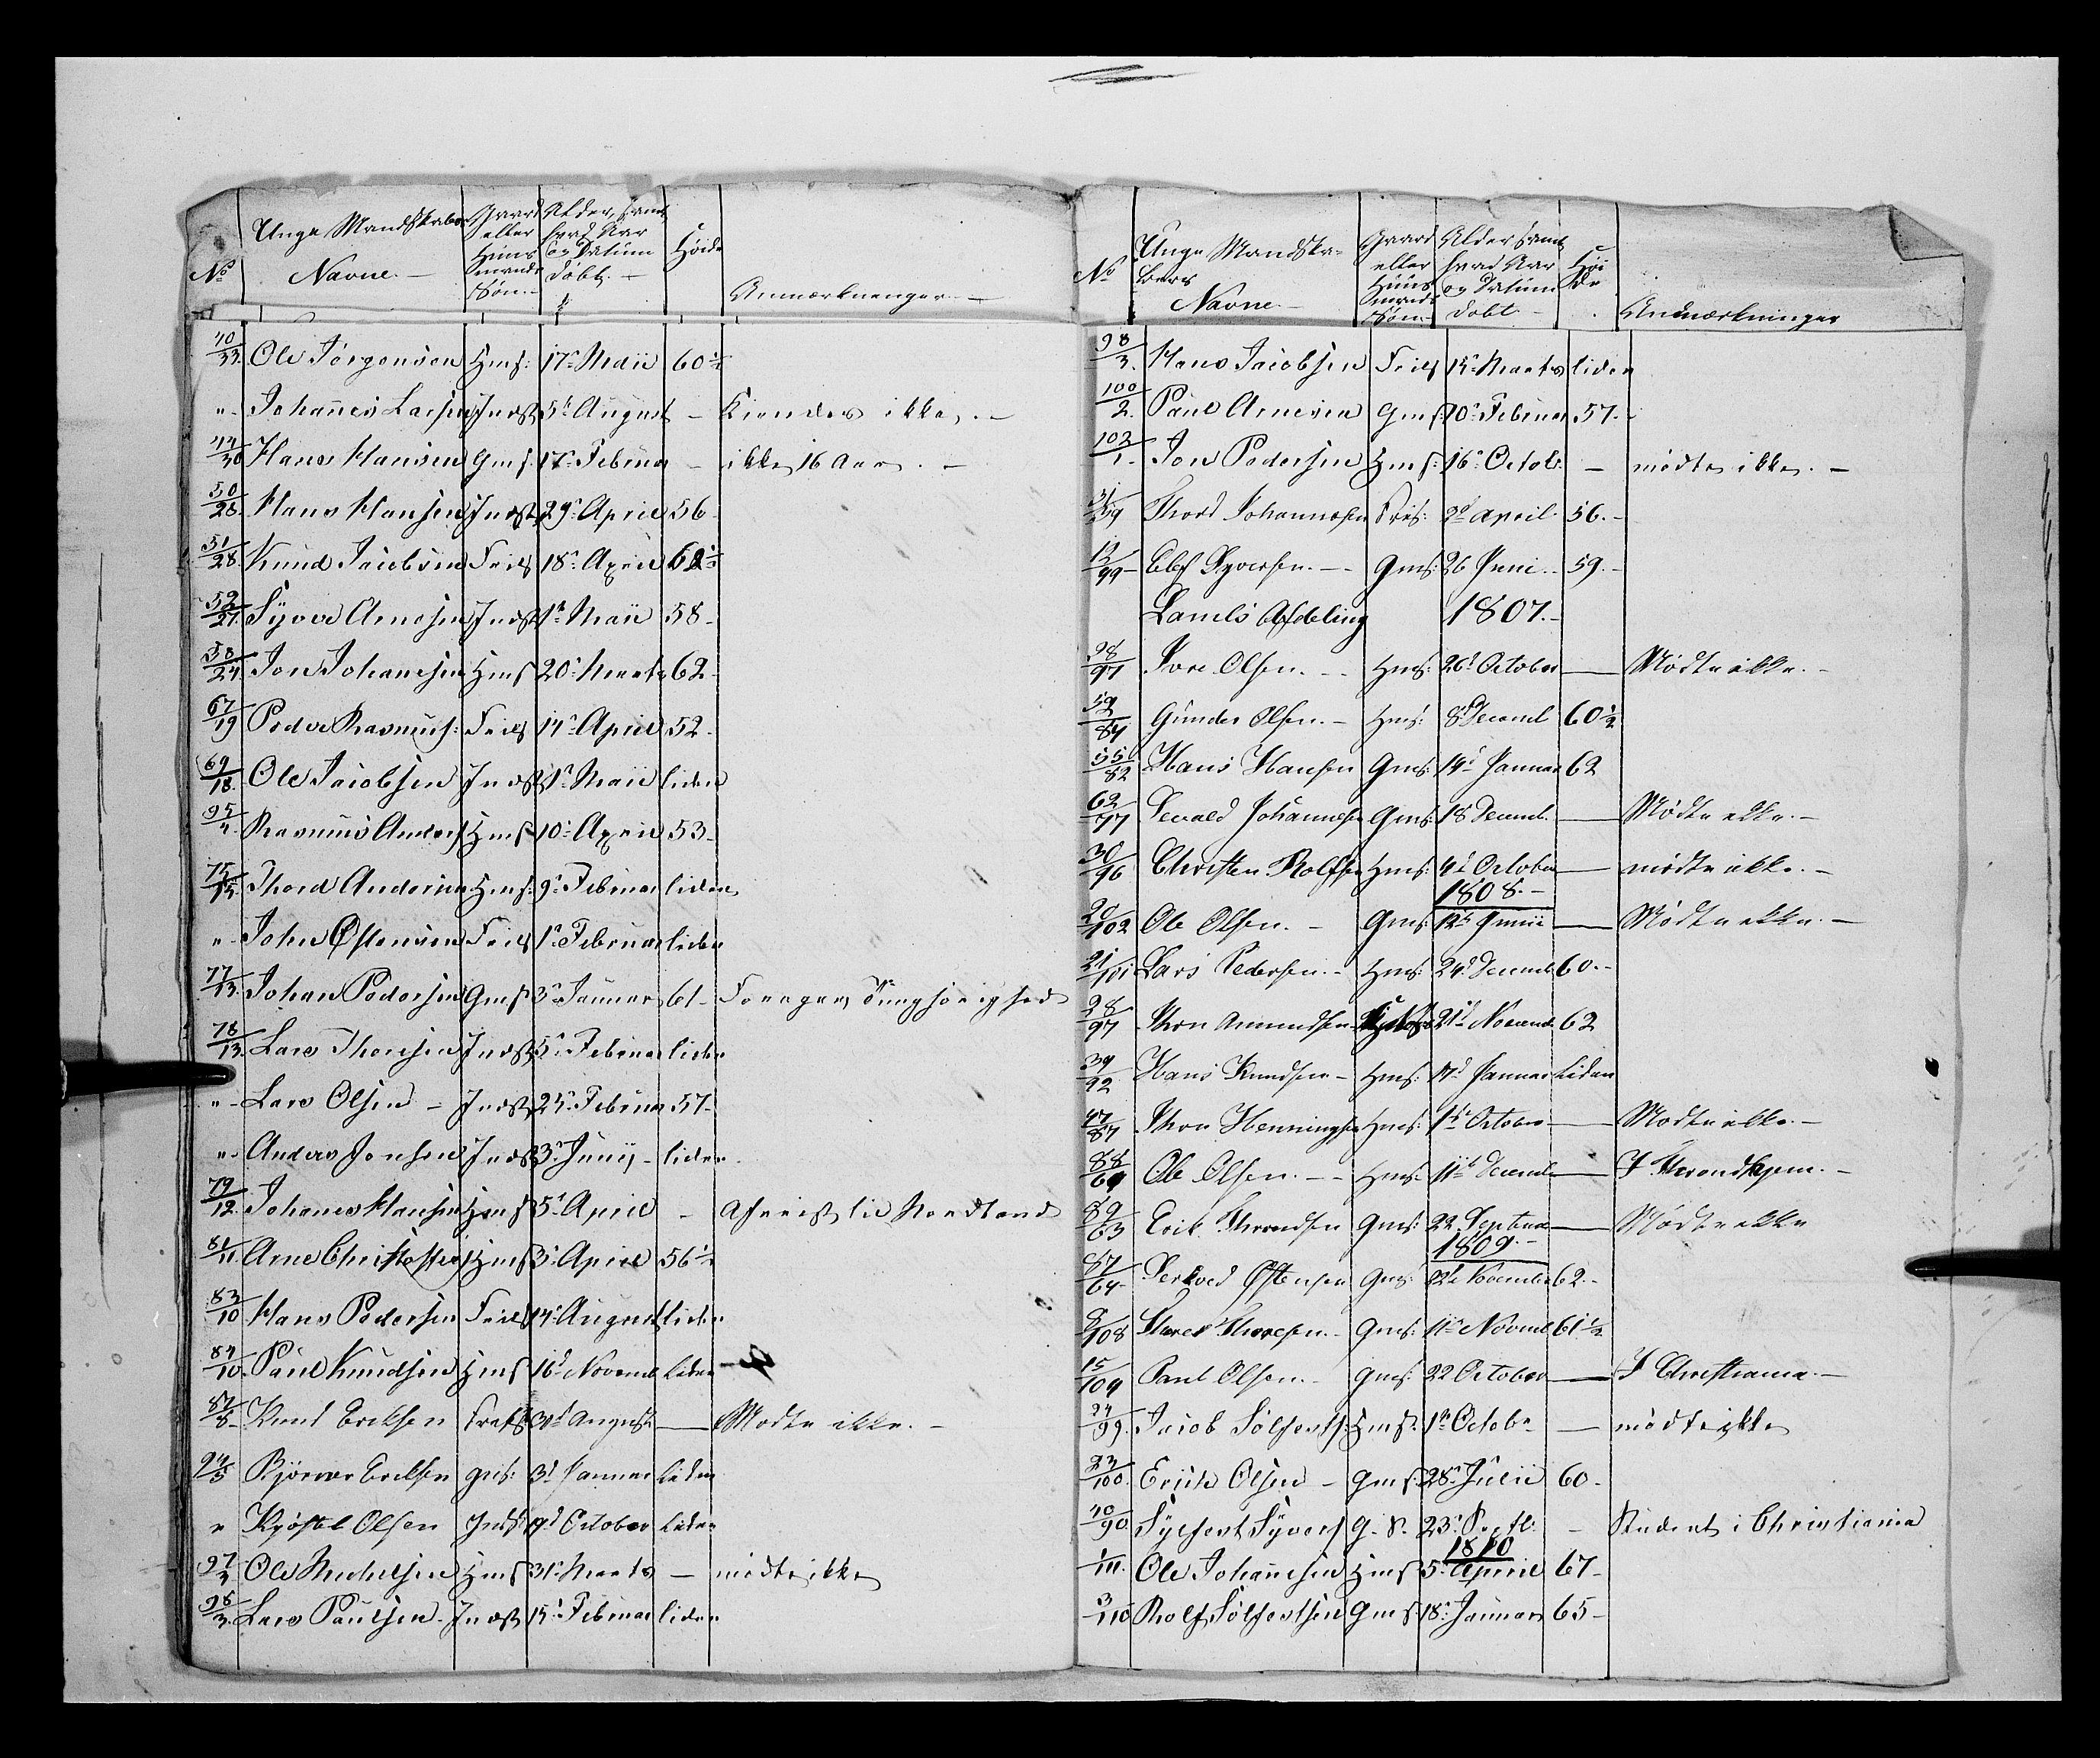 No | Unge Mandskabers Navne. | Gaard eller Huusmands Søn. | Alder, samt hvad Aar og Datum døbt. | Høide | Anmærkninger.
40/33. Ole Jørgensen Hms: 17de Maii 60½
" Johannes Larsen Indst 5t August - Kiendes ikke. -
44/30 Hans Hansen Gms: 17de Februar - ikke 16 Aar. -
50/28. Hans Hansen Indst 29. April 56
51/28. Knud Jacobsen Fries 18. April
52/27. Syver Arnesen Indst 1t Maii 58-
58/24. Jon Johansen Hms 20. Marts 62-
67/19 Peder Rasmus: Fries 14. April 52.
69/18. Ole Jacobsen Indst 1t Maii liden
95/4. Rasmus Anders Hms 10. April 53-
75/15. Thord Andersen Hms: 9. Februar liden
" John Østensen Fries 1t Februar liden
77/13. Johan Pedersen Gms 3. Januar 61-
78/13. Lars Thoresen Indst 5. Februar liden
" Lars Olsen - Indst 25. Februar 57-
" Anders Jonsen Indst 3. Junij - liden
79/12. Johanes Hansen Hms 5. April - Afreist til Nordland
81/11. Arne Christoffers Hms 3. April 56½
83/10 Hans Pedersen Fries 14. August liden
84/10. Paul Knudsen Hms 16d Novemb liden
87/8- Knud Eriksen 31d August - Mødte ikke. -
94/5 Bjørner Eriksen gms: 3d Januar Liden
" Kjøstel Olsen Indst 19d October Liden
97/3 Ole Michelsen Hms 31. Marts - mødte ikke
98/3. Lars Paulsen. Indst 15. Februar liden
No | Unge Mandskabers Navne | Gaard eller Huusmands Søn | Alder samt hvad Aar og Datum døbt - | Høide | Anmærkninger
98/3. Hans Jacobsen Fries 15. Marts liden
100/2. Paul Arnesen Gms: 10. Februar 57.-
102/1. Jon Pedersen Hms: 16. Octob. - mødte ikke. -
31/59 Thord Johannesen Fris: 2d April 56.-
12/99- Olef Syversen. - Gms: 26 Juni. 59.-
Lauels Afdeling 1807.-
28/97 Iver Olsen. - Hms: 26d October - Mødte ikke. -
52/84 Gunder Olsen. - Hms: 8d Decemb 60½
55/82 Hans Hansen Gms: 14d Januar 62
62/77 Sevald Johannesen Gms: 18 Decemb. - Mødte ikke. -
30/96 Christen Rolfsen Hms: 4d October - mødte ikke. -
1808.-
20/102 Ole Olsen. - Gms: 12d Junii - Mødte ikke. -
21/101 Lars Pedersen. - Hms: 24d Decemb 60.-
28/97 Thor Amundsen 21d Novemb 62
39/92 Hans Knudsen - Hms: 17d Januar Liden
47/87 Thor Henningsen Hms: 1ste October - Mødte ikke. -
88/64 Ole Olsen. - - Hms: 11te Decemb - I Throndhjem. -
89/63 Erik Throndsen Gms: 22 Septem - Mødte ikke
1809.-
87/64- Serkved Østensen Gms: 22d November 62.-
8/108 Thoer Thoresen. - Gms: 11te Novemb 61½
15/104 Paul Olsen. - Gms: 22 October - I Christiania. -
24/99. Jacob Solfests: Hms: 1t Octob. - mødte ikke
23/100. Erich Olsen - Gms: 28. Julii 60-
40/90 Sylfest Syvers G. S. 23. Septb: - Student i Christiania
1810
1/111. Ole Johannesen Hms 5. April 67-
3/110 Rolf Solfestsen Gms 18. Januar 65-